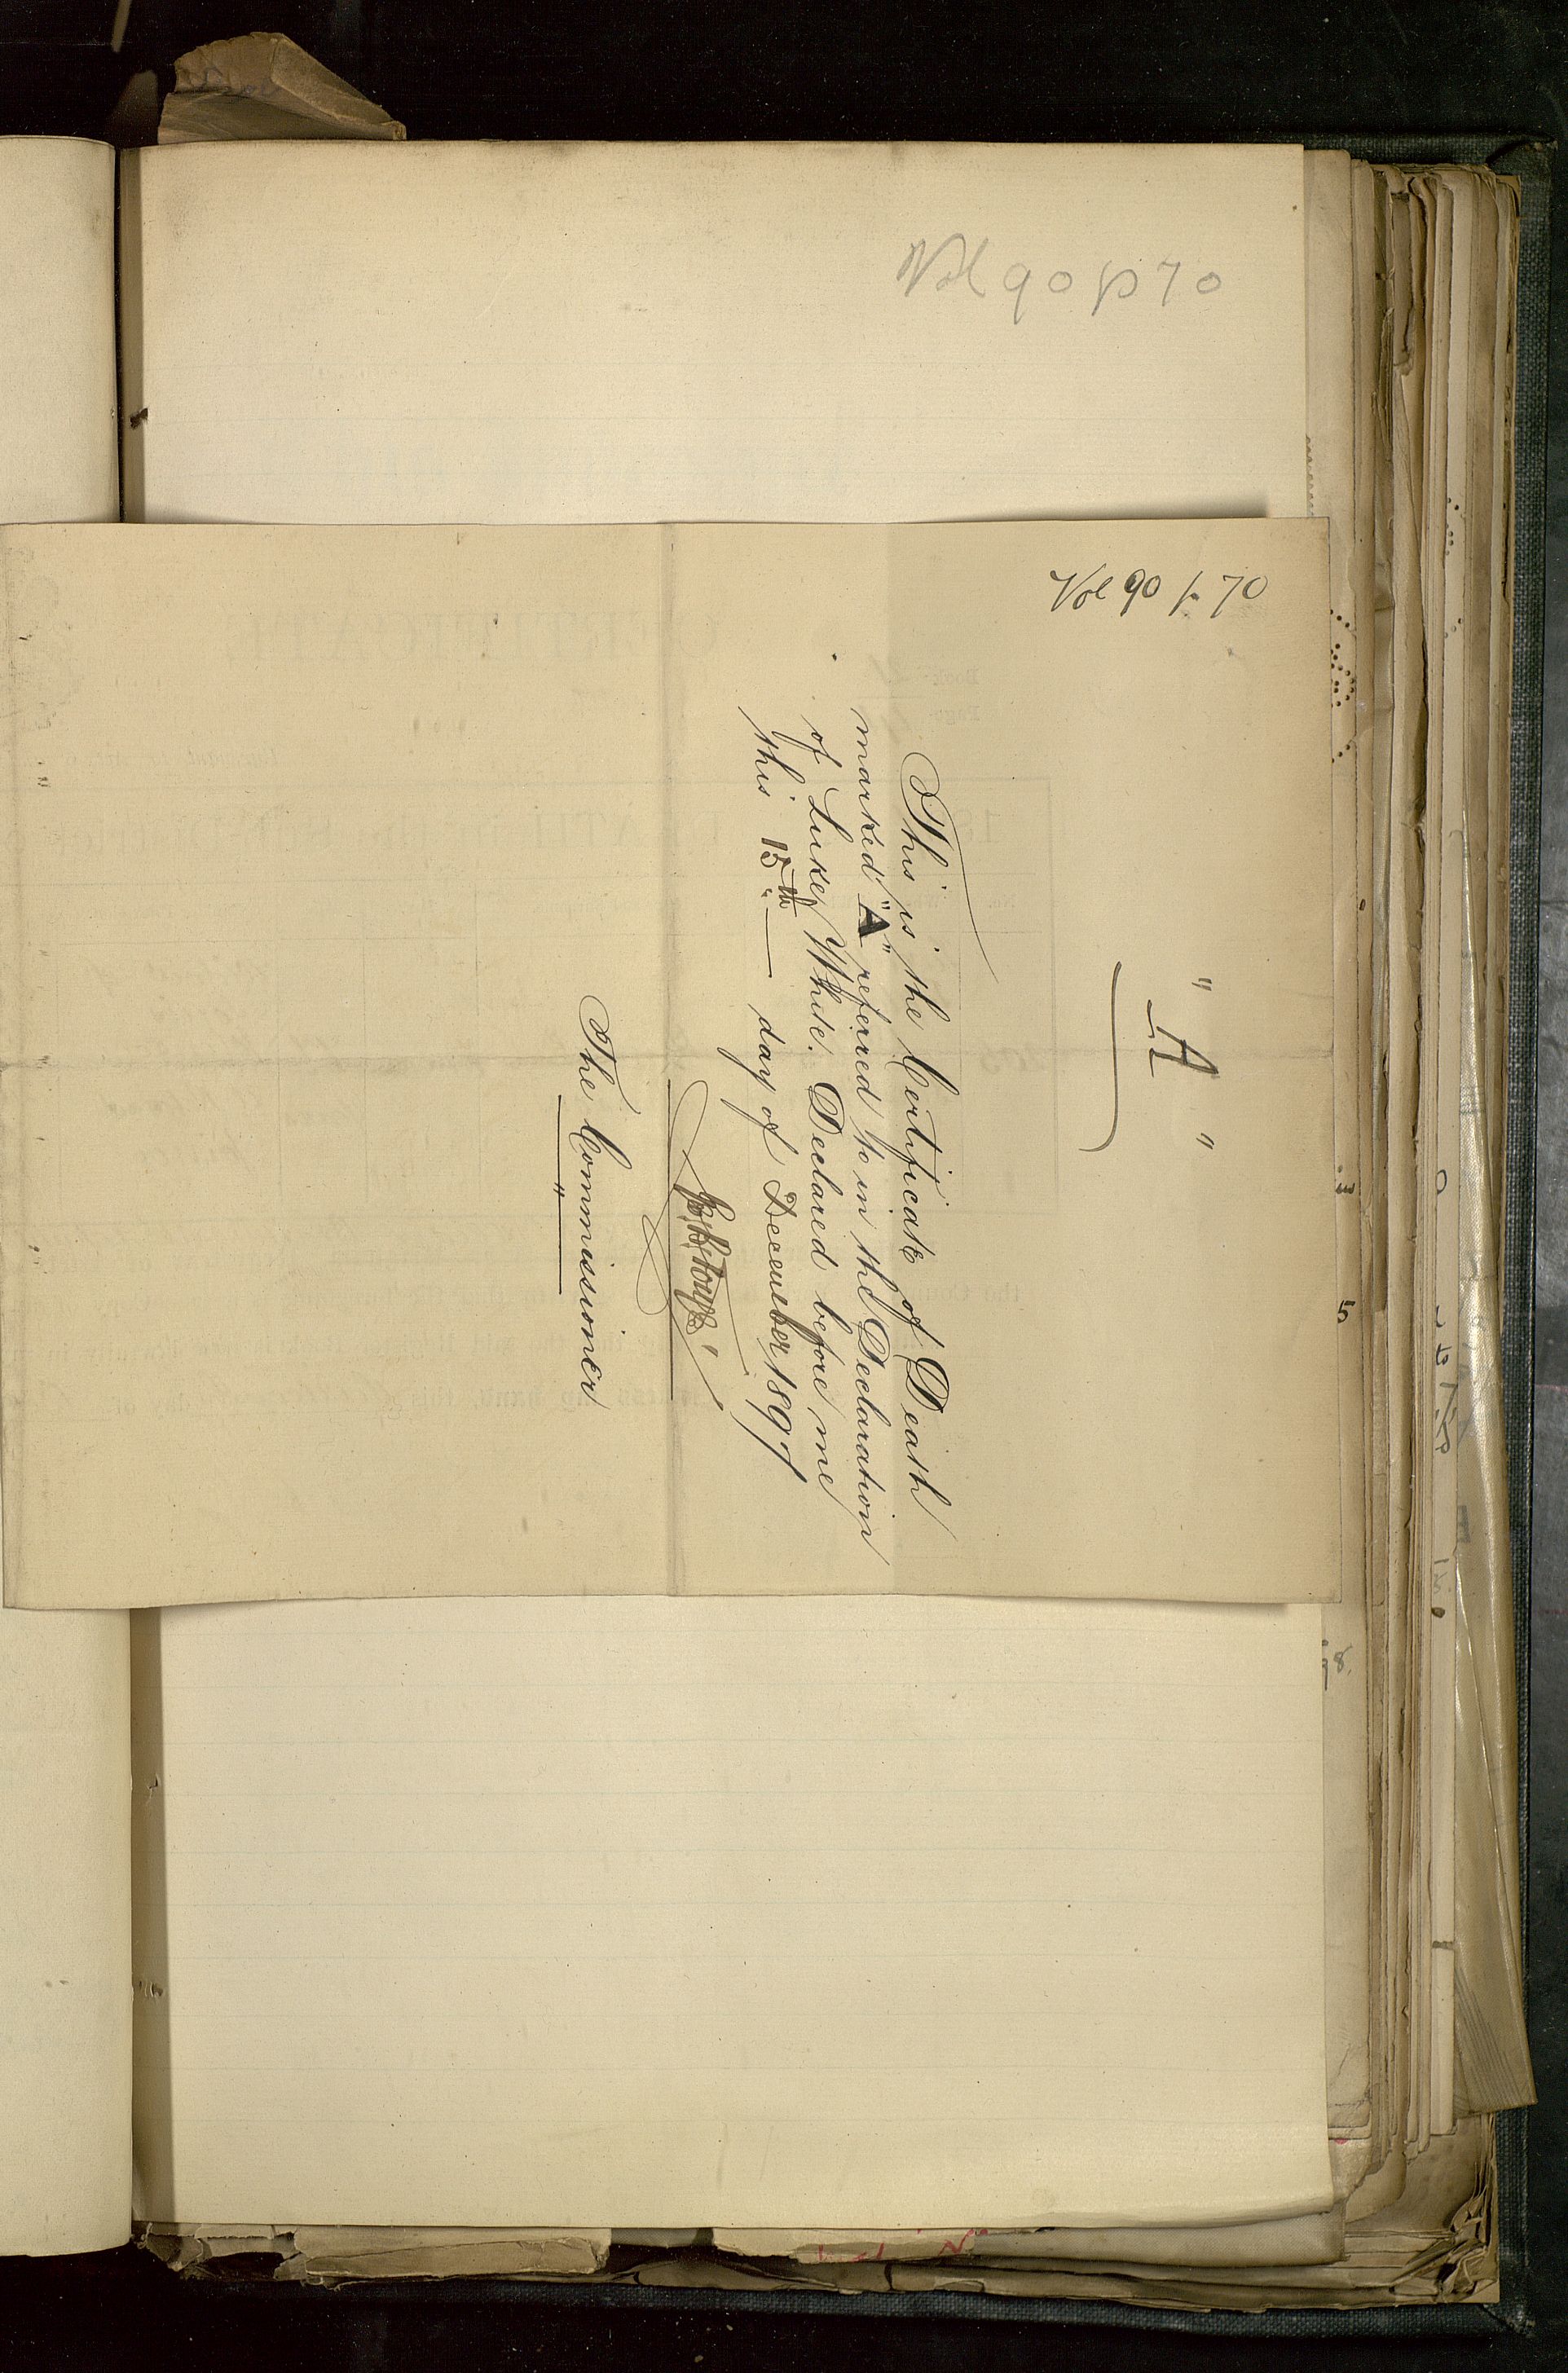 Vol 90 p 70
Vol 90 p. 70
"A"
This is the Certificate of Death
marked "A" referred to in the Declaration
of Lukey White. Declared before me
this 15th day of December 1897
The Commissioner